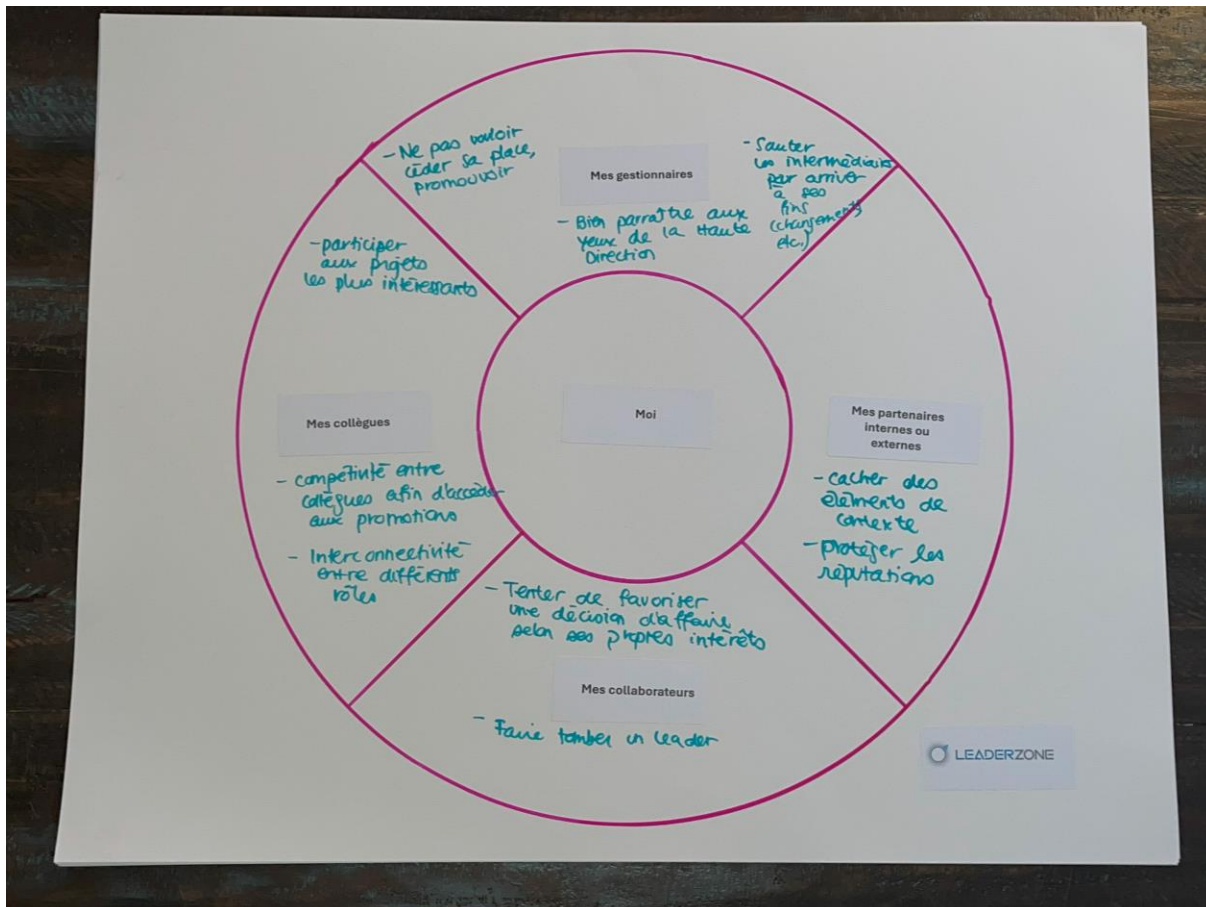 - Ne pas vouloir
céder sa place,
promouvoir
Mes gestionnaires
- Sauter
les intermédiaires
par arriver
à ses
fins
(changements
etc.)
- Bien parraître aux
yeux de la Haute
Direction
- participer
aux projets
les plus intéressants
Mes collègues
- compétivité entre
collègues afin d'accéder
aux promotions
- Interconnectivité
entre différents
rôles
Moi
Mes partenaires
internes ou
externes
- cacher des
éléments de
contexte
- protéger les
réputations
- Tenter de favoriser
une décision d'affaire
selon ses propres intérêts
Mes collaborateurs
- Faire tomber un leader
LEADERZONE